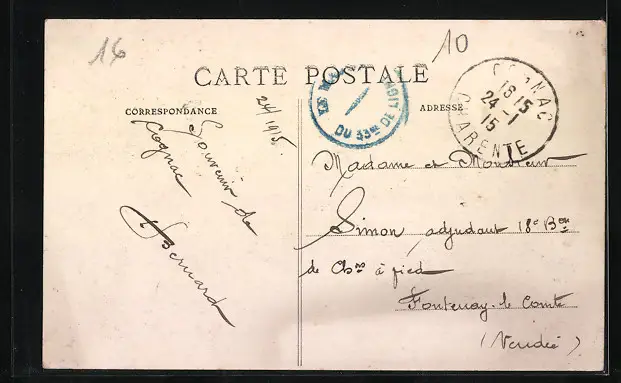 16
10
CARTE POSTALE
CORRESPONDANCE
ADRESSE
24/1 15.
Souvenir de
Cognac
Bernard
DU 53me DE
COGNAC
16 15
24 -1
15
CHARENTE
Madame et Monsieur
Simon adjudant 18e Bon
de Chrs à pied
Fontenay-le Comte
(Vendée)